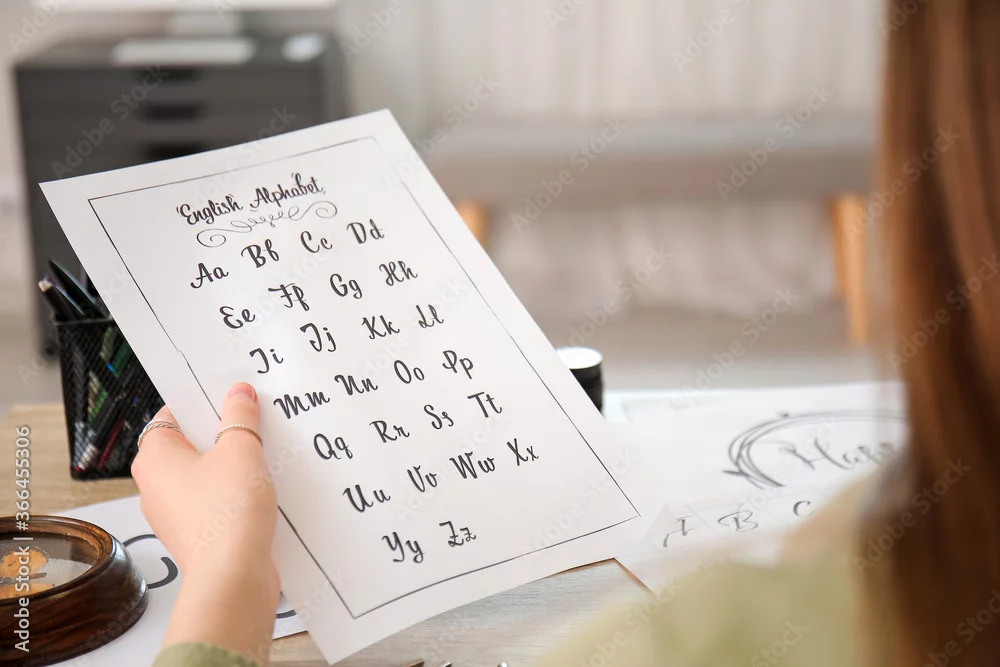 English Alphabet
Aa Bb Cc Dd
Ee Ff Gg Hh
Ii Jj Kk Ll
Mm Nn Oo Pp
Qq Rr Ss Tt
Uu Vv Ww Xx
Yy Zz
B C
Adobe Stock | #366455306